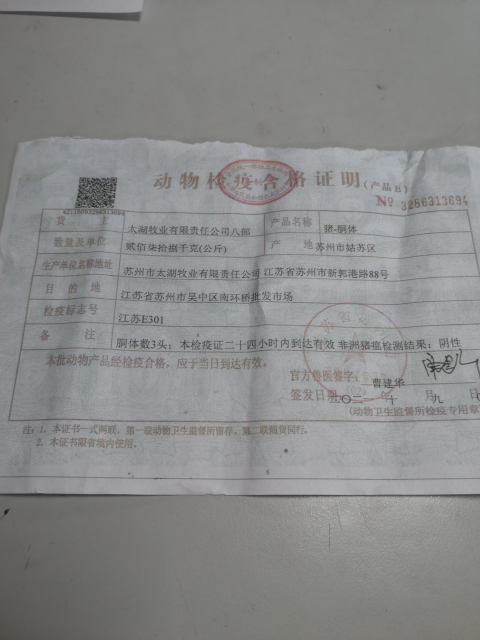 动物检疫合格证明(产品B)
№ 3286313694
货 主 太湖牧业有限责任公司八部 产品名称 猪-胴体
数量及单位 贰佰柒拾捌千克(公斤) 产 地 苏州市姑苏区
生产单位名称地址 苏州市太湖牧业有限责任公司 江苏省苏州市新郭港路88号
目 的 地 江苏省苏州市吴中区南环桥批发市场
检疫标志号 江苏E301
备 注 胴体数3头；本检疫证二十四小时内到达有效 非洲猪瘟检测结果：阴性
本批动物产品经检疫合格，应于当日到达有效。
官方兽医签字： 曹建华
签发日期
(动物卫生监督所检疫专用章
注：1. 本证书一式两联，第一联动物卫生监督所留存，第二联随货同行。
2. 本证书限省境内使用。